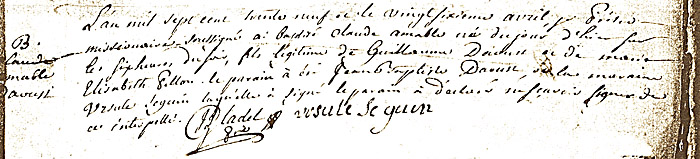 L'an mil sept cent trente neuf et le vingt sixieme avril je Prêtre
missionaire soussigné a baptisé claude amable né du jour d'hier sur
les six heures du soir, fils legitime de Guillaume Daoust et de marie
Elisabeth Pillon. le parain a été Jean baptiste Daoust, et la maraine
Ursule Seguin laquelle a signé le parain a déclaré ne sçavoir signer de
ce interpellé.
B.
claude
amable
aoust
ursule Seguin